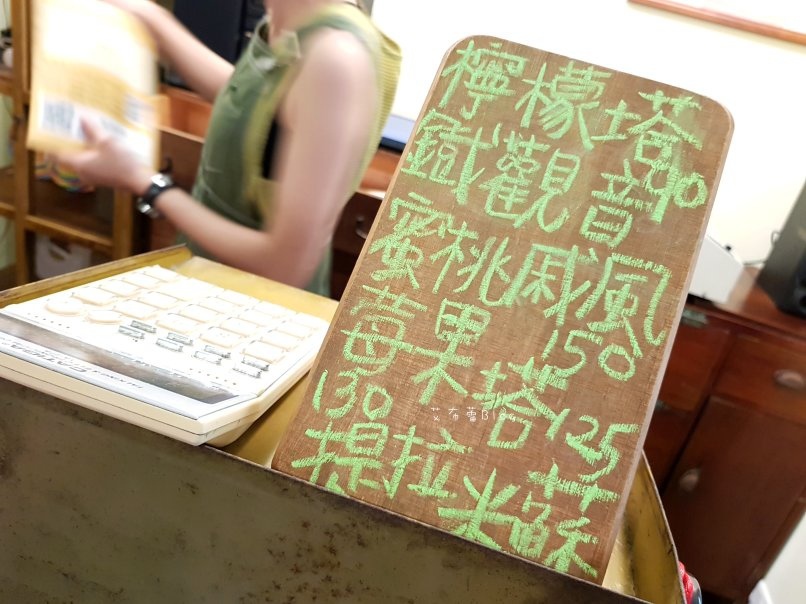 檸檬塔
90
鐵觀音
蜜桃戚風
150
莓果塔
125
130
提拉米蘇
艾布蕾Blog